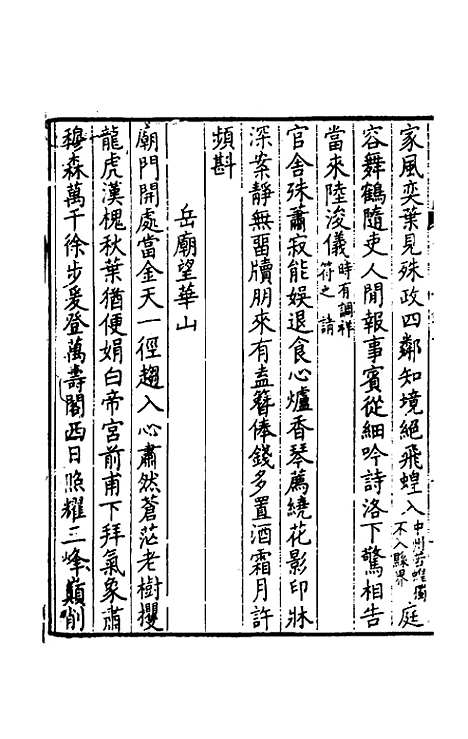 家風奕葉見殊政四鄰知境絕飛蝗入中州苦蝗獨不入縣界庭
容舞鶴隨吏人閒報事賓從細吟詩洛下驚相告
當來陸浚儀時有調祥符之請
官舍殊蕭寂能娛退食心爐香琴薦繞花影印牀
深案靜無畱牘朋來有盍簪俸錢多置酒霜月許
頻斟
岳廟望華山
廟門開處當金天一徑趨入心肅然蒼茫老樹攫
龍虎漢槐秋葉猶便娟白帝宮前甫下拜氣象肅
穆森萬千徐步爰登萬壽閣西日照耀三峰巔削